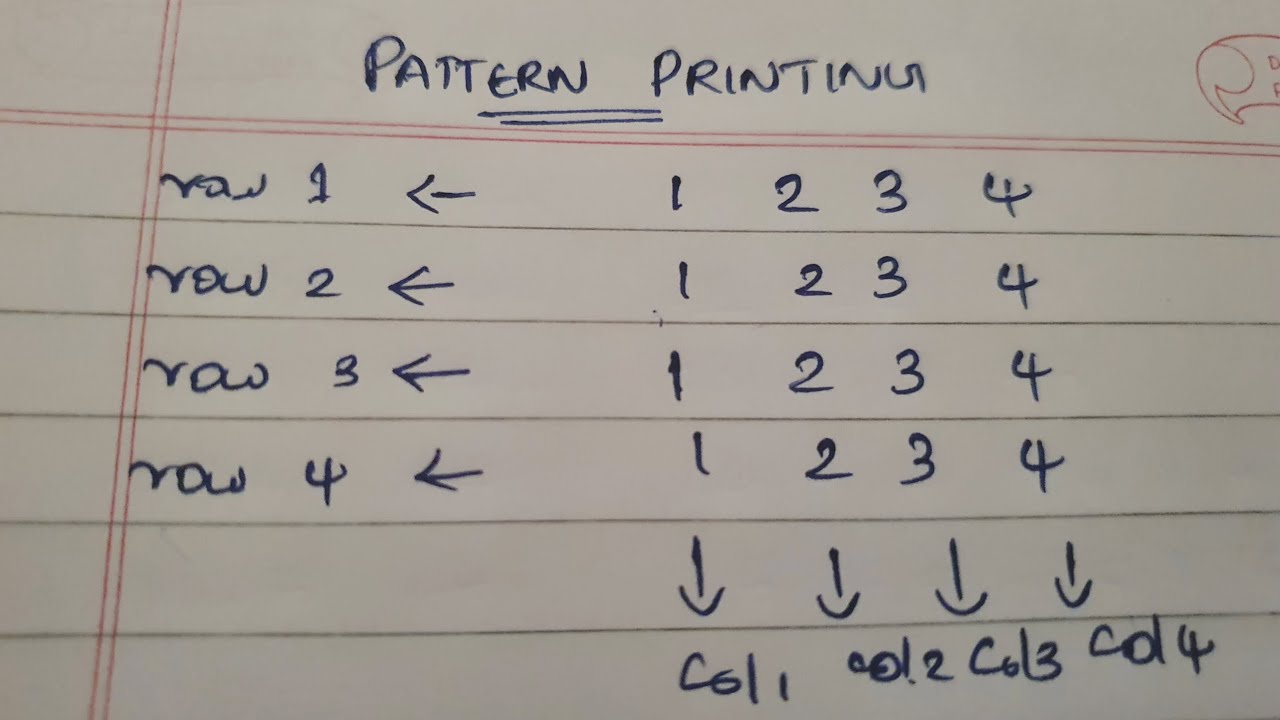 PATTERN PRINTING
row 1 ← 1 2 3 4
row 2 ← 1 2 3 4
row 3 ← 1 2 3 4
row 4 ← 1 2 3 4
↓ ↓ ↓ ↓
Col 1 col 2 Col 3 Col 4